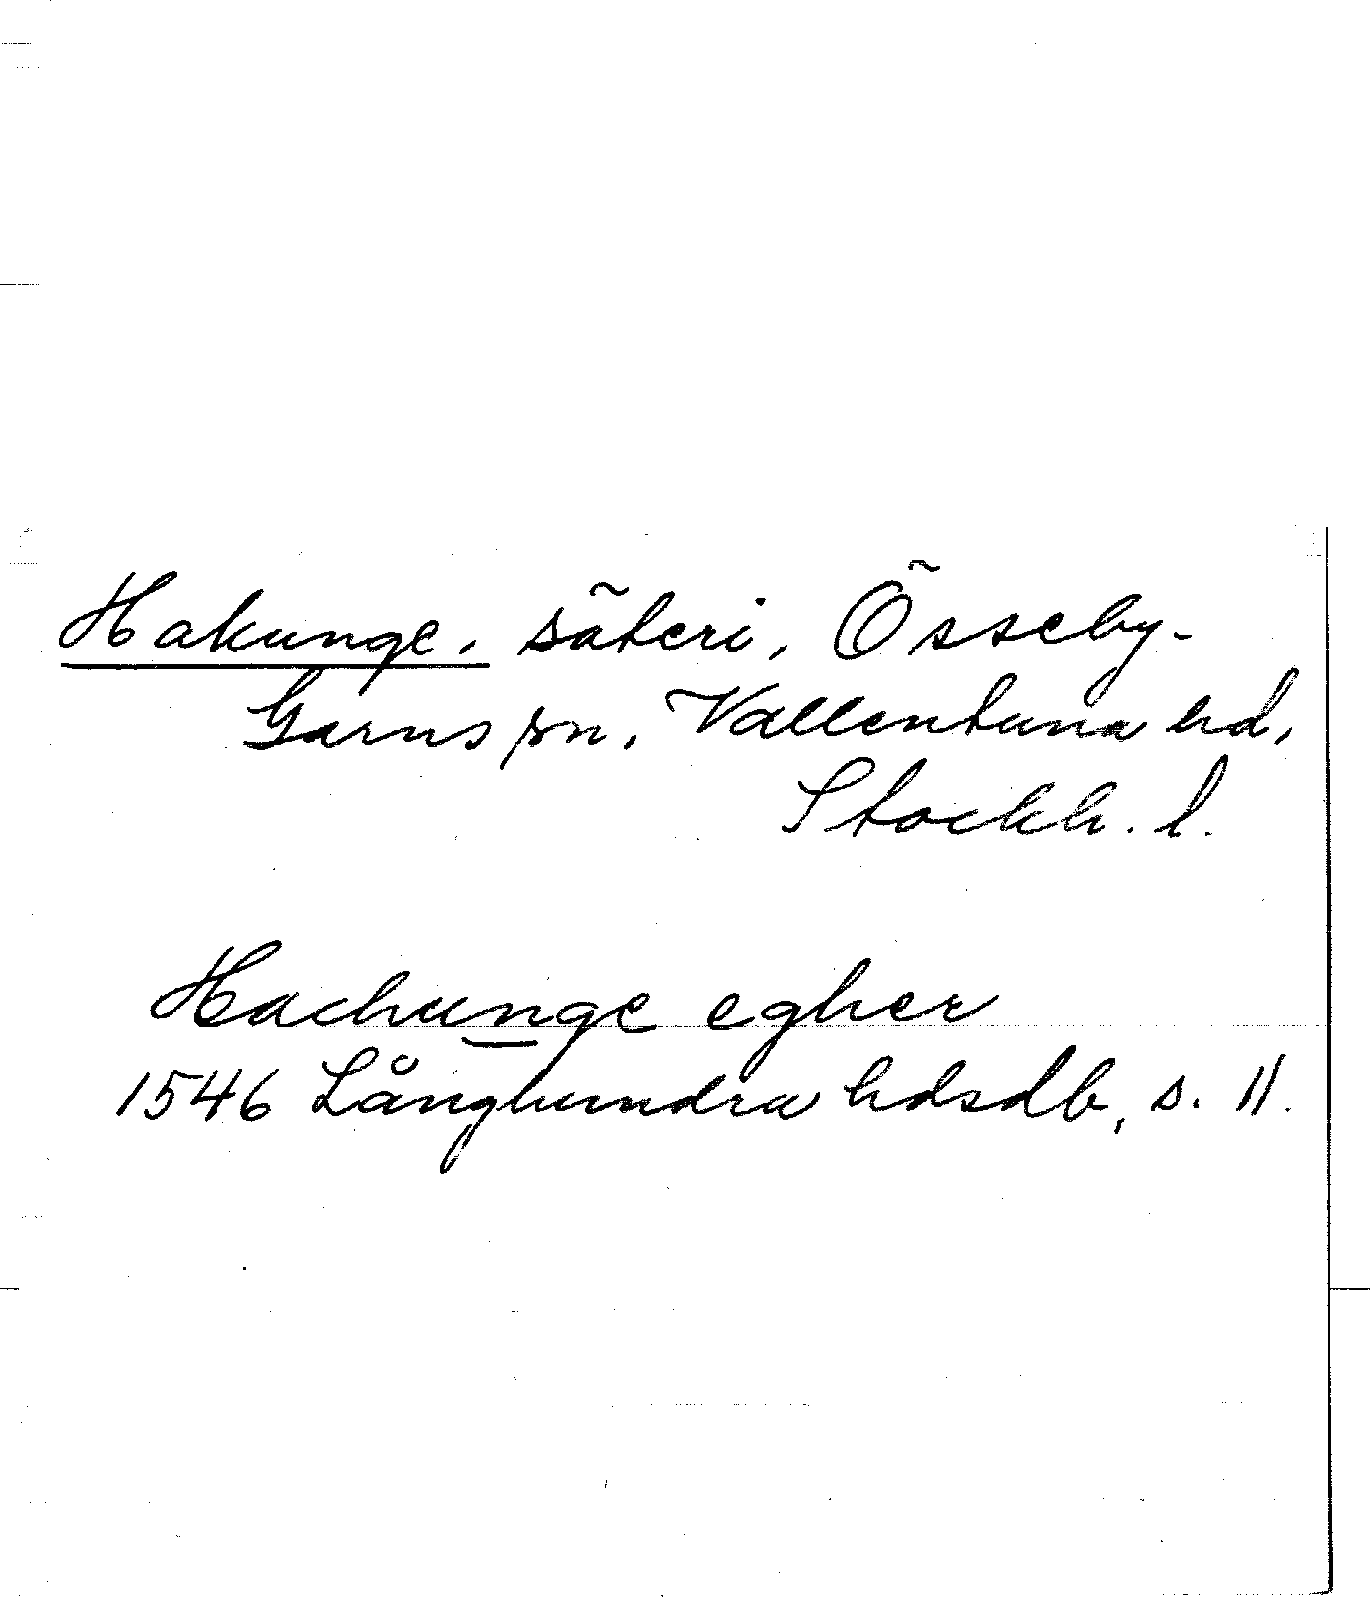 Hakunge, säteri, Össeby-
Garns sn, Vallentuna hd,
Stockh. l.
Hachunge egher
1546 Långhundra hdsdb, s. 11.